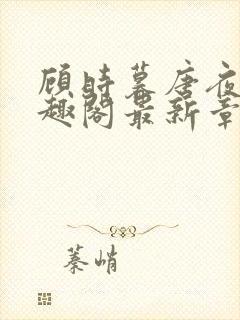 顾时暮唐夜
趣阁最新章
蓁峭